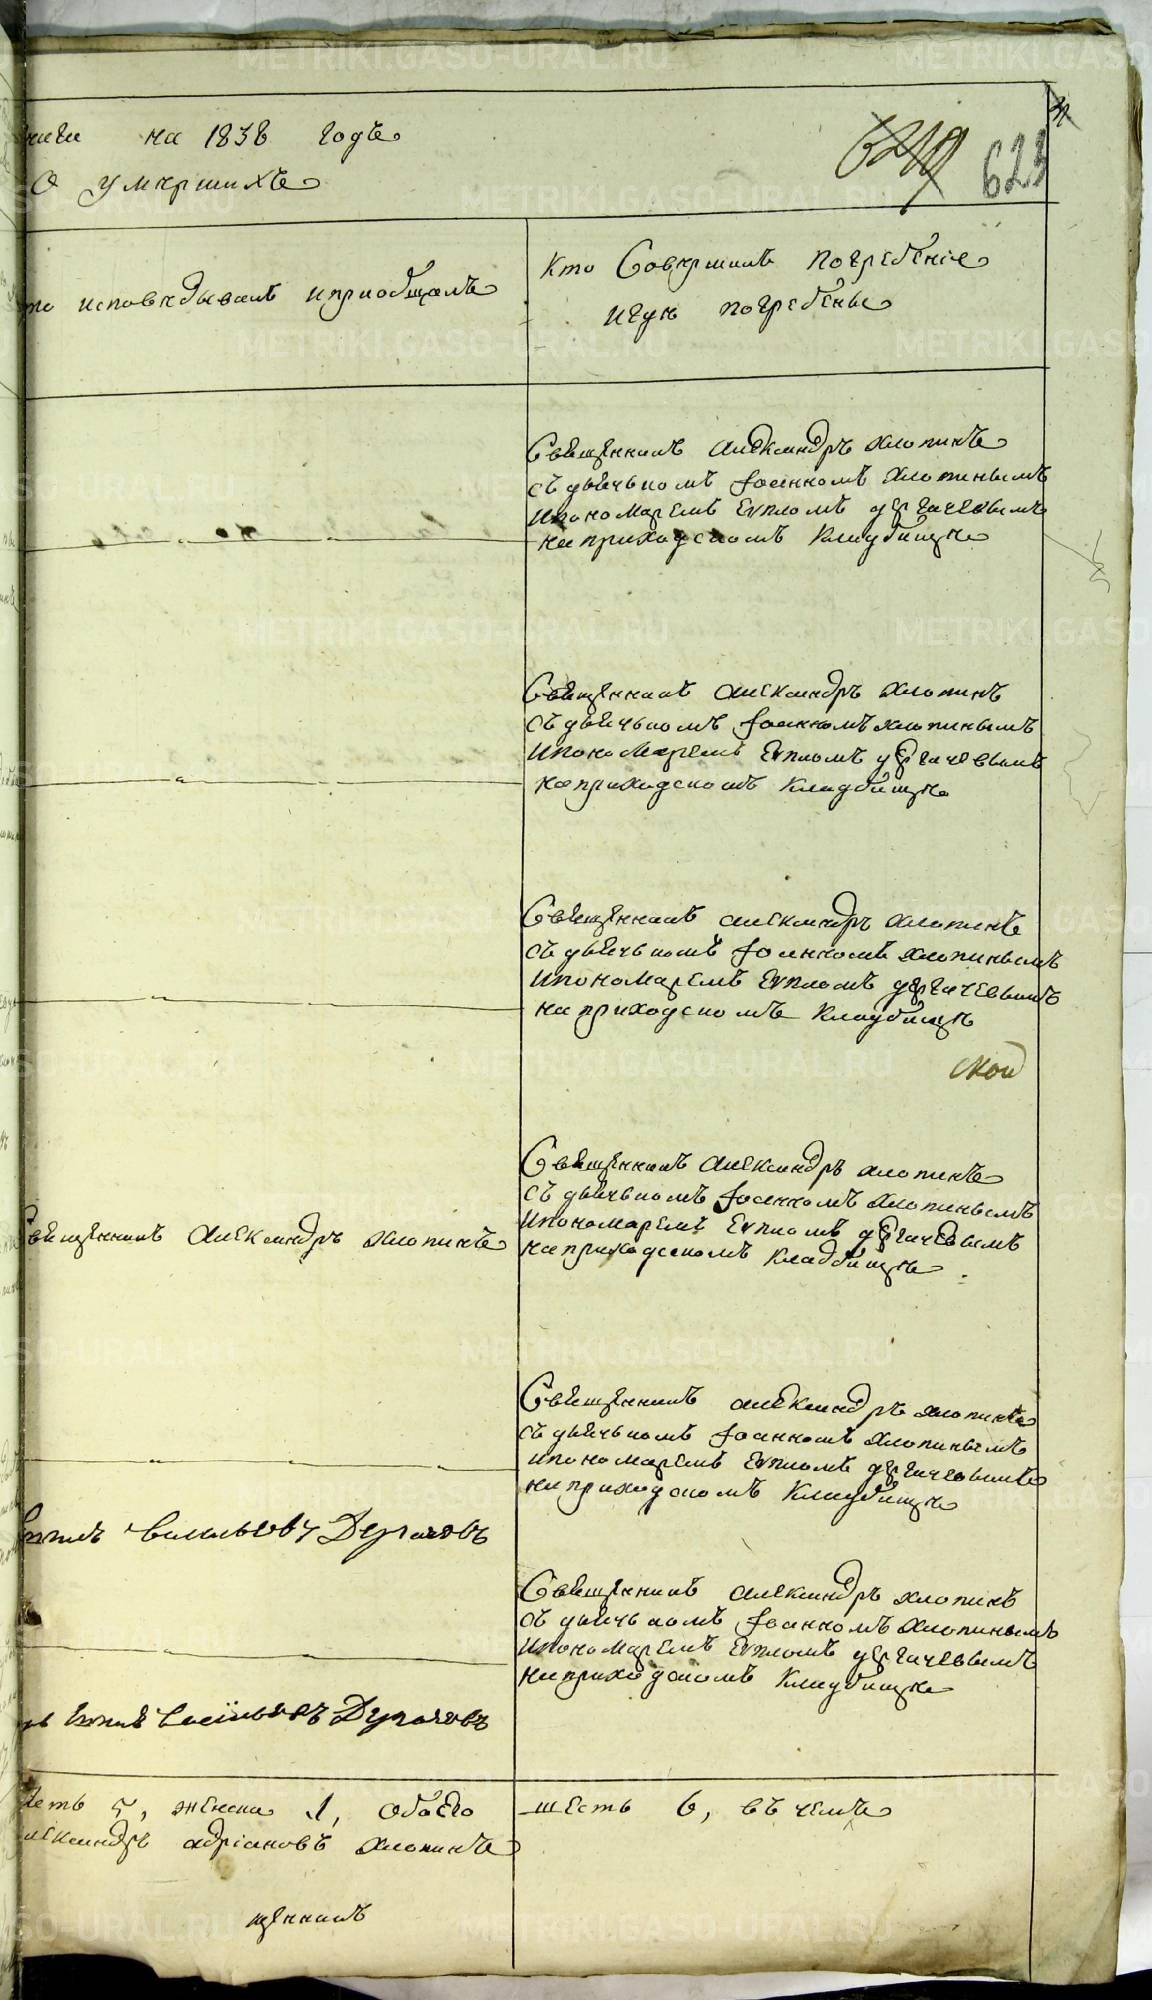 на 1838 годъ
О умершихъ
623
исповѣдывалъ и приобщалъ
Кто Совершалъ погребенiе
и гдѣ погребены
Священникъ Александръ Хлопинъ
съ дьячькомъ Iоанномъ Хлопинымъ
и пономаремъ Евпломъ Дергачевымъ
на приходскомъ Кладбищѣ
Священникъ Александръ Хлопинъ
съ дьячькомъ Iоанномъ Хлопинымъ
и пономаремъ Евпломъ Дергачевымъ
на приходскомъ Кладбищѣ
Священникъ Александръ Хлопинъ
съ дьячькомъ Iоанномъ Хлопинымъ
и пономаремъ Евпломъ Дергачевымъ
на приходскомъ Кладбищѣ
ской
Священникъ Александръ Хлопинъ
Священникъ Александръ Хлопинъ
съ дьячькомъ Iоанномъ Хлопинымъ
и пономаремъ Евпломъ Дергачевымъ
на приходскомъ Кладбищѣ
Священникъ Александръ Хлопинъ
съ дьячькомъ Iоанномъ Хлопинымъ
и пономаремъ Евпломъ Дергачевымъ
на приходскомъ Кладбищѣ
Священникъ Александръ Хлопинъ
съ дьячькомъ Iоанномъ Хлопинымъ
и пономаремъ Евпломъ Дергачевымъ
на приходскомъ Кладбищѣ
5, женска 1, обоего
шесть 6, въ чемъ
адрiановъ Хлопинъ
щенникъ
METRIKI.GASO-URAL.RU